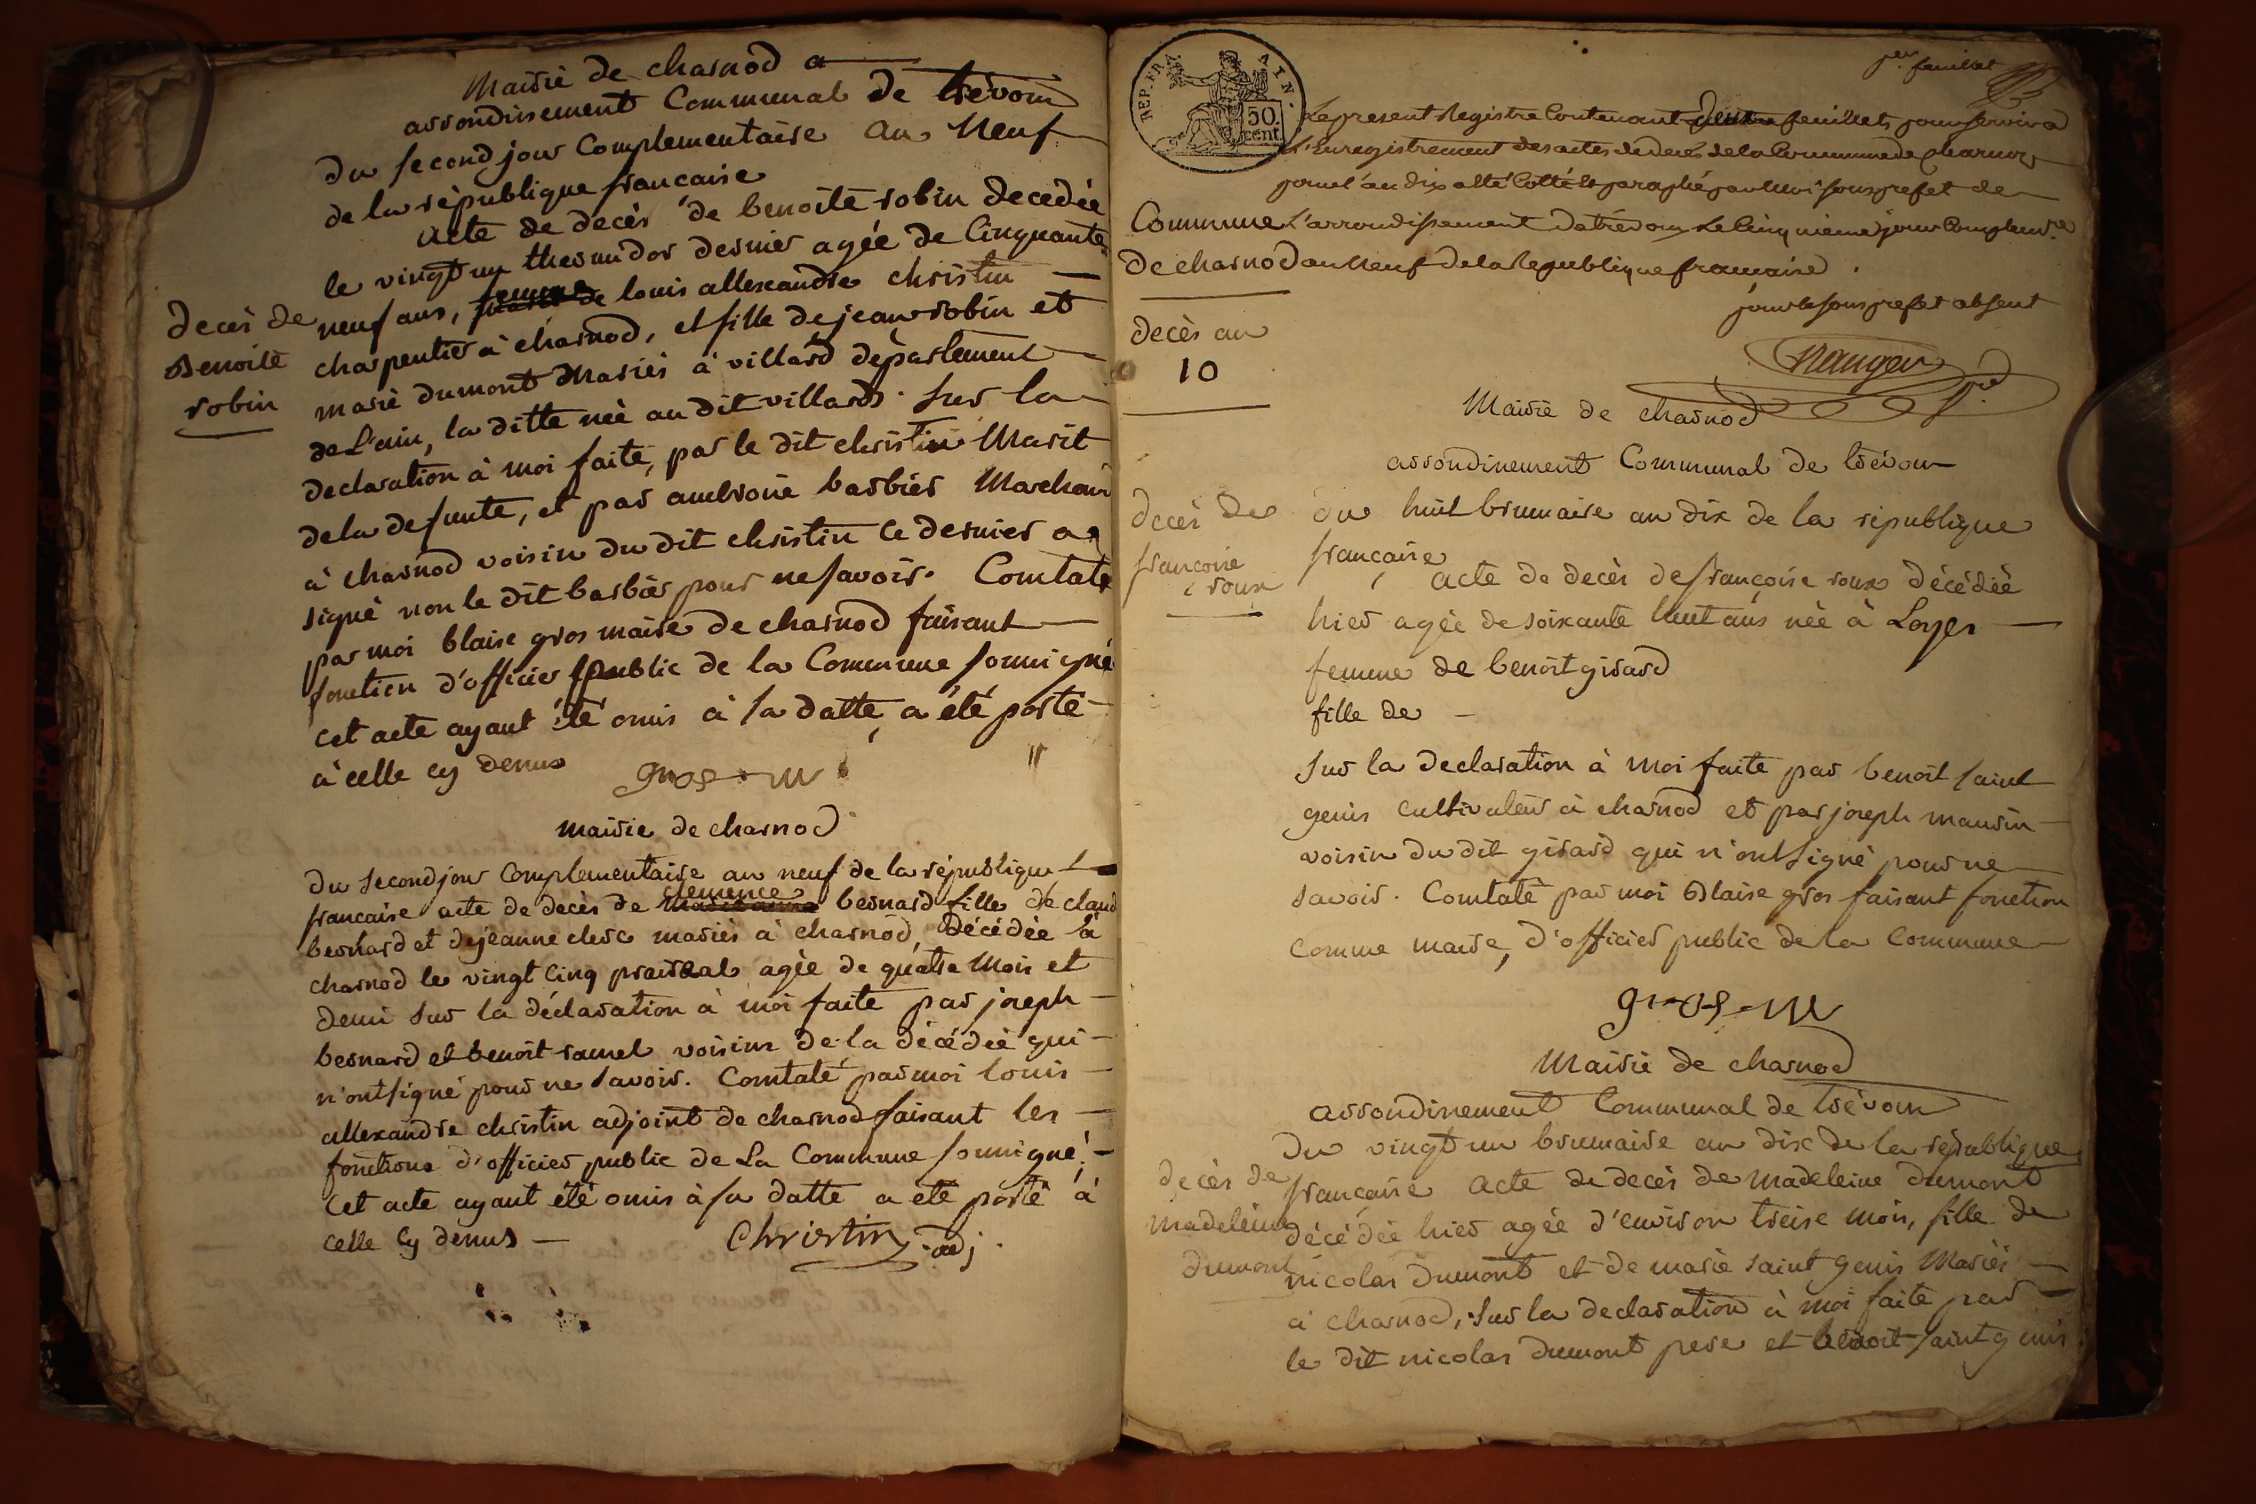 Mairie de charnod
arrondissement Communal de trévoux
du second jour Complementaire an Neuf
de la république francaise
acte de decès de benoite robin decedée
le vingt un thermidor dernier agée de Cinquante
neuf ans, femme de louis allexandre christin
charpentier à charnod, et fille de jean robin et
marie dumont Mariés à villard departement
de L'ain, la ditte née au dit villard. Sur la
declaration à moi faite, par le dit christin Marit
de la defunte, et par ambroise barbier Marchand
à charnod voisin du dit christin Ce dernier a
signé non le dit barbier pour ne savoir. Constaté
par moi blaise gros maire de charnod faisant
fonction d'officier public de la Commune soussigné
Cet acte ayant été omis à sa datte a été porté
à celle cy dessus
gros m
decès de
Benoite
robin
mairie de charnod
du second jour Complementaire an neuf de la république
francaise acte de decès de clemence bernard fille de claude
bernard et de jeanne clerc mariés à charnod, décédée à
charnod le vingt cinq prairial agée de quatre Mois et
demi sur la déclaration à moi faite par joseph
bernard et benoit ramel voisins de la décédée qui
n'ont signé pour ne savoir. Constaté par moi louis
allexandre christin adjoint de charnod faisant les
fonctions d'officier public de La Commune soussigné,
Cet acte ayant été omis à sa datte a eté porté à
celle cy dessus
Christin adj.
REP. FRA
AIN.
50
cent.
per feuillet
Le present Registre Contenant feuillets pour servir a
L'Enregistrement des actes de decès de la Commune de Charnoz
pour l'an dix a été Cotté et paraphé par Moi sous prefet de
L'arrondissement de trévoux Le Cinquieme jour Complemre
an Neuf de la Republique francaise.
pour le sous prefet absent
Commune
de charnod
decès an
10
Mairie de charnod
arrondissement Communal de trévoux
du huit brumaire an dix de la république
française
acte de decès de françoise roux décédée
hier agée de soixante huit ans née à Loyes
femme de benoit girard
fille de
sur la declaration à moi faite par benoit saint
genis cultivateur à charnod et par joseph maurin
voisin du dit girard qui n'ont signé pour ne
savoir. Constaté par moi Blaise gros faisant fonction
comme maire, d'officier public de la Commune
gros m
decès de
francoise
roux
Mairie de charnod
arrondissement Communal de trévoux
du vingt un brumaire an dix de la république
française acte de decès de madeleine dumont
décédée hier agée d'environ treise mois, fille de
nicolas dumont et de marie saint genis Mariés
à charnod, sur la declaration à moi faite par
le dit nicolas dumont pere et benoit saint genis
decès de
madeleine
dumont